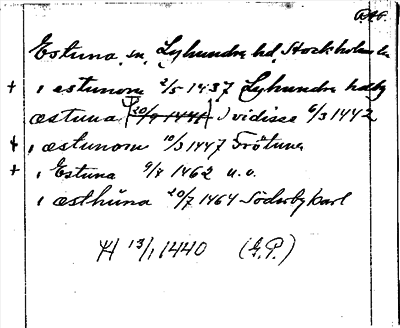 Estuna, sn, Lyhundra hd, Stockholms län
+ i æstunom 2/5 1437 Lyhundra hdbg
æstuna (20/9 1441) i vidisse 6/3 1442
+ i æstunom 10/3 1447 Frötuna
+ i Estuna 9/7 1462 u.o.
i æsthüna 20/7 1464 Söderbykarl
H 13/1 1440 (G.P.)